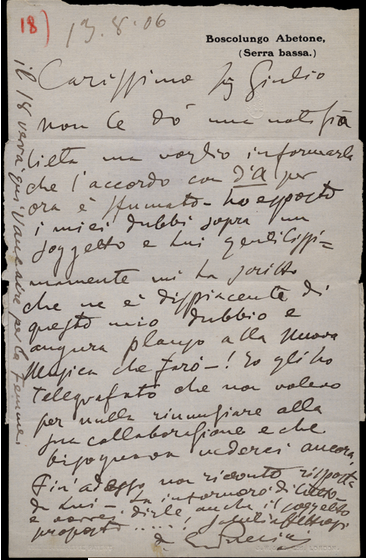 18)
13.8.06
Boscolungo Abetone,
(Serra bassa.)
Carissimo Sig Giulio
non Le dò una notizia
lieta ma voglio informarla
che l'accordo con D'A per
ora è sfumato - ho esposto
i miei dubbi sopra un
soggetto e Lui gentilissi=
mamente mi ha scritto
che ne è dispiacente di
questo mio dubbio e
augura plauso alla nuova
Musica che farò -! Io gli ho
telegrafato che non volevo
per nulla rinunziare alla
sua collaborazione e che
bisognava vederci ancora,
Fin'adesso non ricevuto risposta
da Lui - La informerò di
e vorrei dirle anche il soggetto
proposti.....!
da GPuccini
il 18 verrà qui Vaucaire per la femme